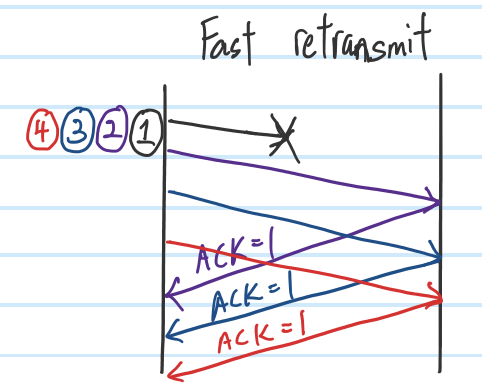 Fast retransmit
4 3 2 1
ACK=1
ACK=1
ACK=1